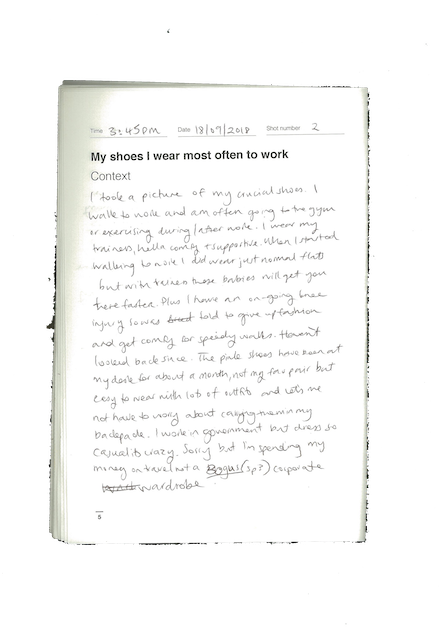 Time 3:45PM Date 18/09/2018 Shot number 2
My shoes I wear most often to work
Context
I took a picture of my crucial shoes. I
walk to work and am often going to the gym
or exercising during/after work. I wear my
trainers, hella comfy + supportive. When I started
walking to work I did wear just normal flats
but with these babies will get you
there faster. Plus I have an on-going knee
injury so was told to give up fashion
and get comfy for speedy walks. Haven't
looked back since. The pink shoes have been at
my desk for about a month, not my fav pair but
easy to wear with lots of outfits and lets me
not have to worry about carrying them in my
backpack. I work in government but dress so
casually crazy. Sorry but I'm spending my
money on travel not a Bogus (sp?) corporate
wardrobe
5